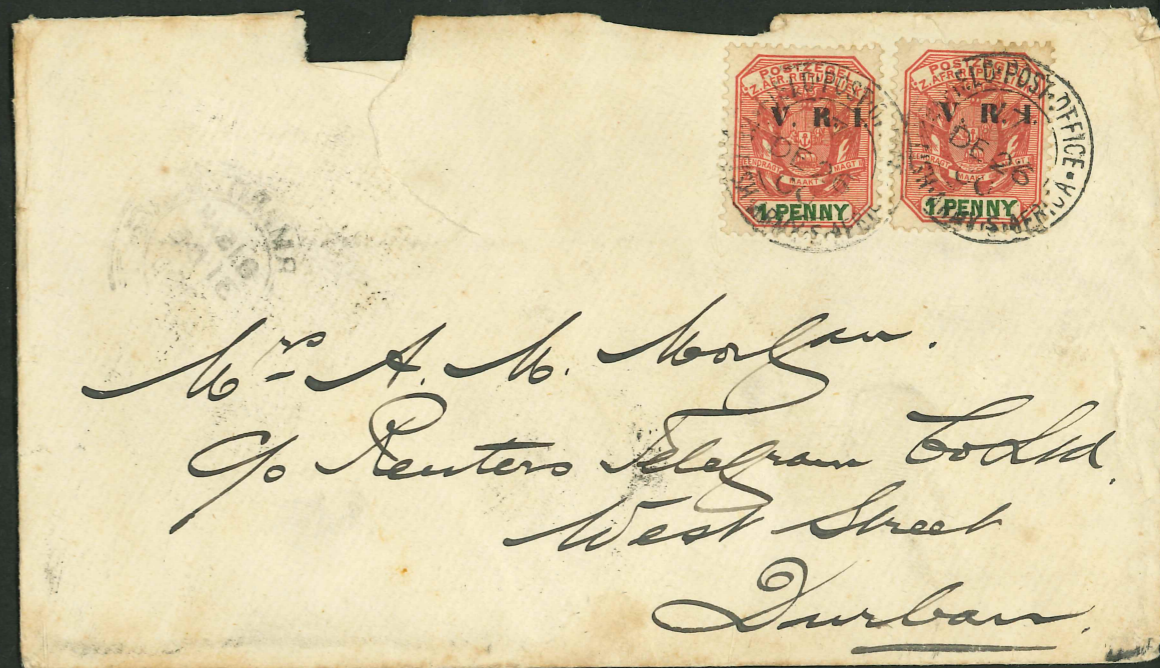 POSTZEGEL
Z. AFR. REPUBLIEK
V. R. I.
EENDRAGT MAAKT MAGT
1 PENNY
POSTZEGEL
Z. AFR. REPUBLIEK
V. R. I.
EENDRAGT MAAKT MAGT
1 PENNY
FIELD POST OFFICE
DE 26
00
FIELD·POST·OFFICE·
DE 26
00
AFRICA
Mrs A. M. Morgan.
C/o Reuters Telegram Co Ltd.
West Street
Durban.